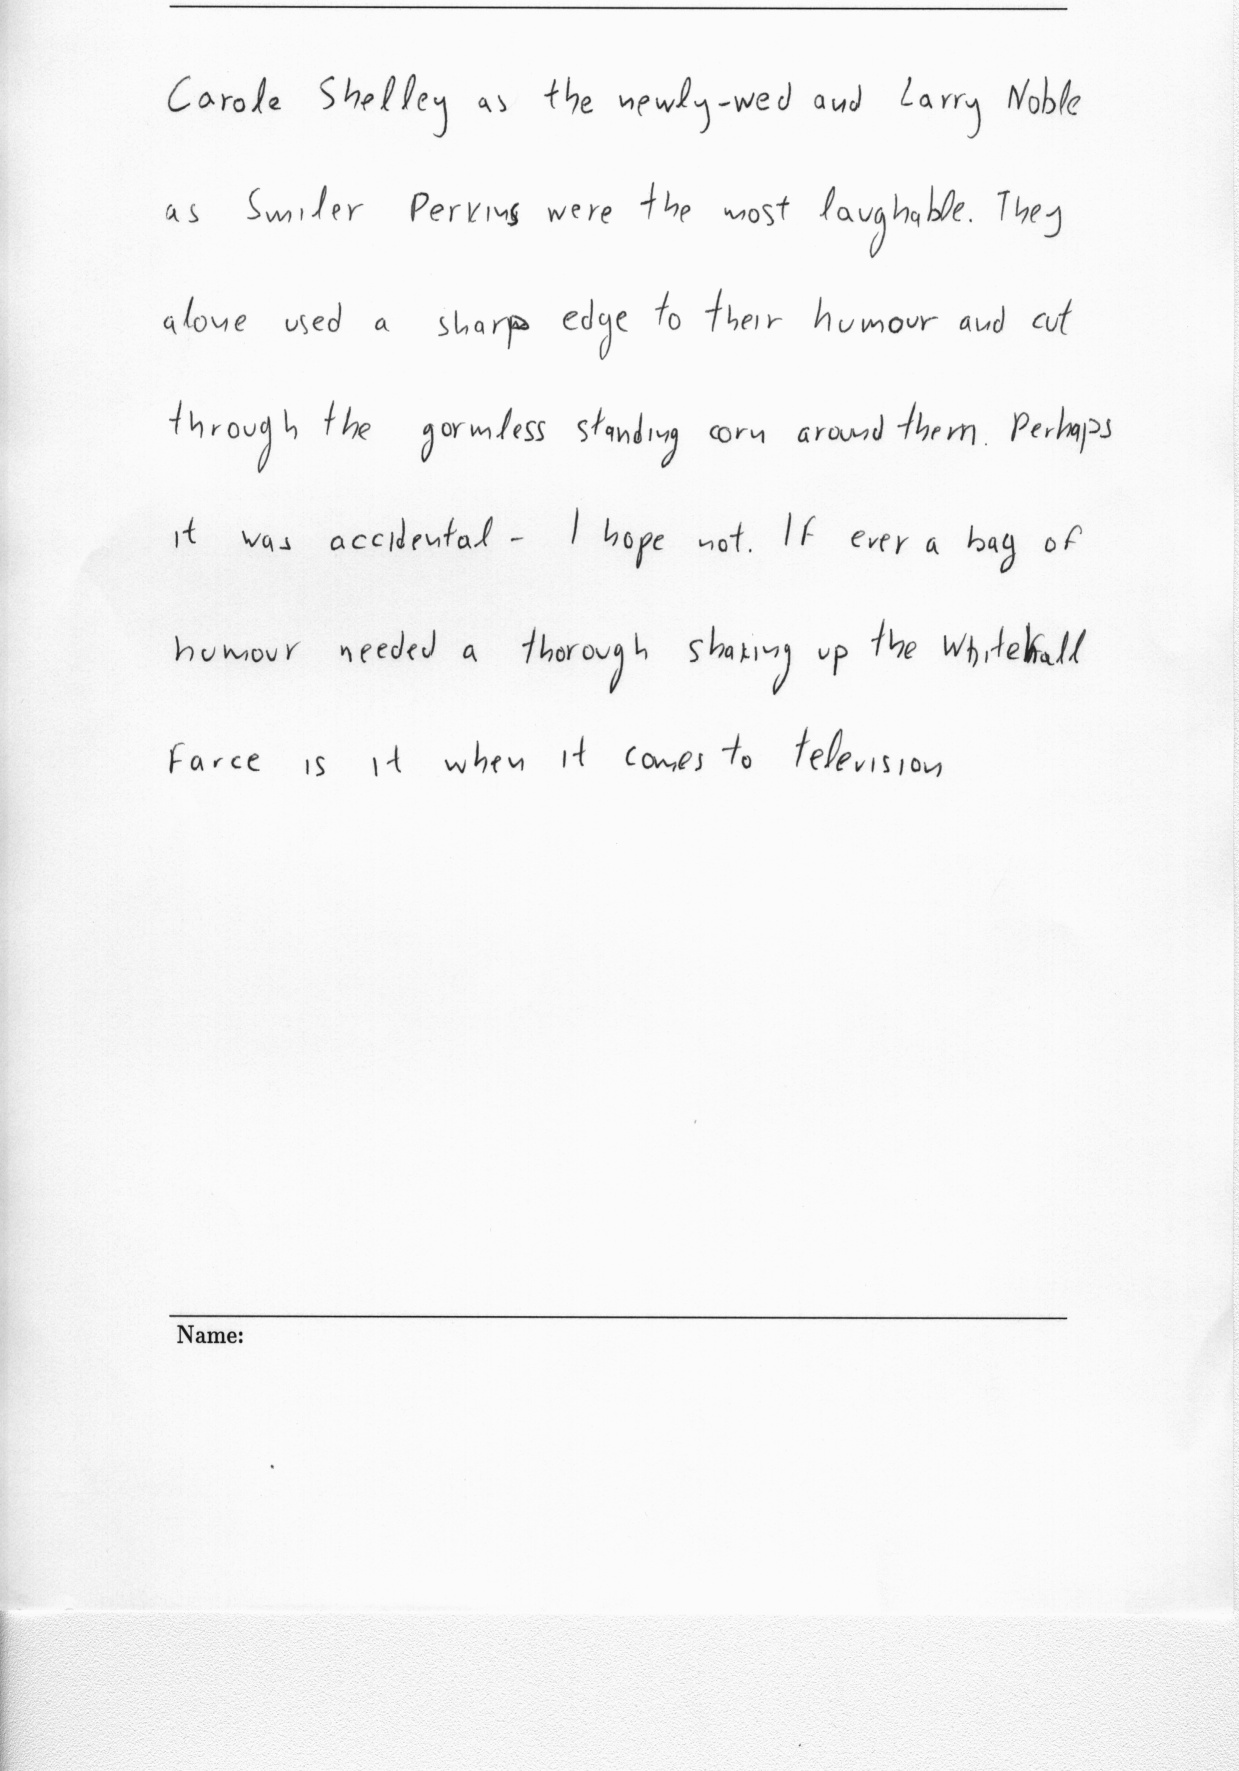 Carole Shelley as the newly-wed and Larry Noble
as Smiler Perkins were the most laughable. They
alone used a sharp edge to their humour and cut
through the gormless standing corn around them. Perhaps
it was accidental - I hope not. If ever a bag of
humour needed a thorough shaking up the Whitehall
Farce is it when it comes to television
Name: